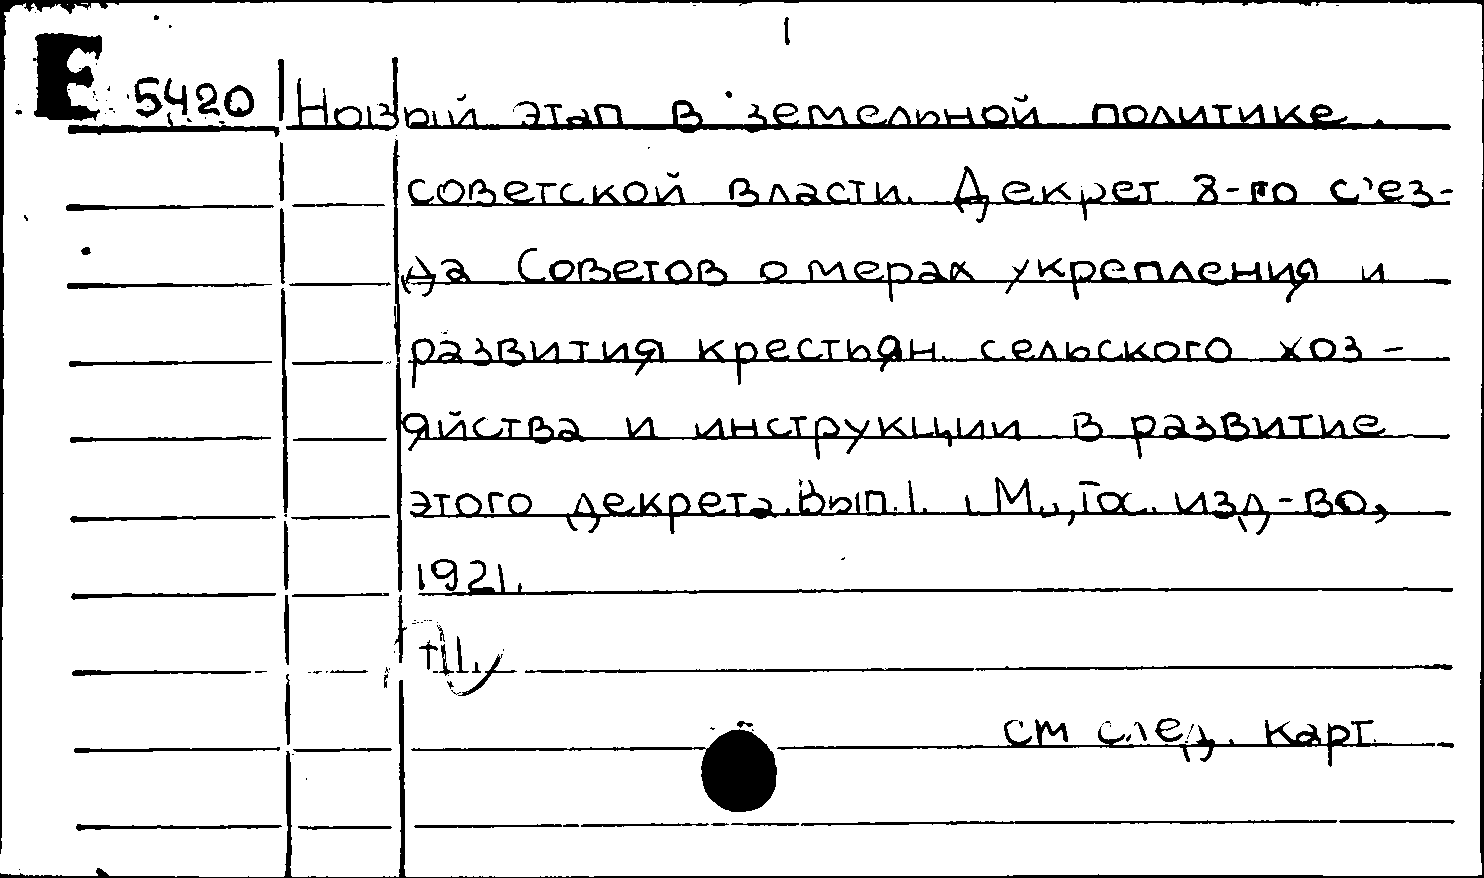 1
E 5420 Новый этап в земельной политике
советской власти. Декрет 8-го с'ез-
да Советов о мерах укрепления и
развития крестьян. сельского хоз-
яйства и инструкции в развитие
этого декрета. Вып. 1. М., Гос. изд-во,
1921.
см след. карт